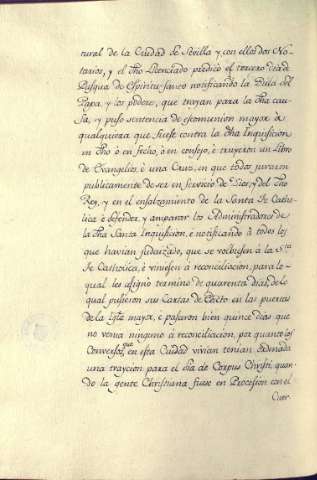 tural de la Ciudad de Sevilla y con ellos dos No-
tarios, y el dho Licenciado predicó el tercero dia de
Pasqua de Espiritu-Santo notificando la Bula del
Papa, y los poderes, que trayan para la dha cau-
sa, y puso sentencia de escomunion mayor à
qualquiera que fuese contra la dha Inquisicion
en dho ò en fecho, ò en consejo, è truxeron un Libro
de Evangelios, è una Cruz, en que todos juraron
publicamente de ser en servicio de Dios, y del dho
Rey, y en el ensalzamiento de la Santa Fe Catho-
lica è defender, y amparar los Administradores de
la dha Santa Inquisicion, è notificando à todos los
que havian judaizado, que se volbiesen à la S.ta
Fe Catholica, è viniesen à reconciliacion, para lo
qual les asigno termino de quarenta dias, de lo
qual pusieron sus Cartas de Edicto en las puertas
de la Igla mayor, è pasaron bien quince dias que
no venia ninguno à reconciliacion, por quanto los
Conversos que en esta Ciudad vivian tenian ordenada
una trayción para el dia de Corpus Christi, quan-
do la gente Christiana fuese en Procesion con el
Cuer-